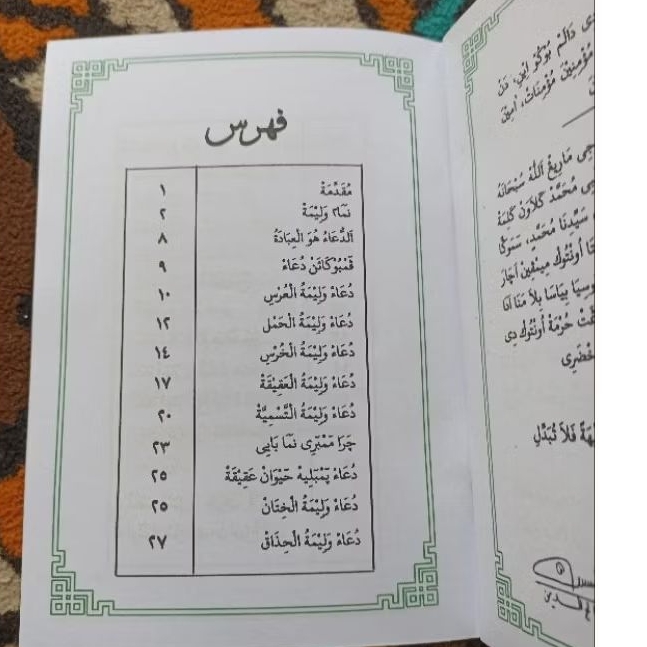 فهرس
مُقَدِّمَةْ ١
نمَا٢ وَلِيْمَةْ ٢
اَلدُّعَاءُ هُوَ الْعِبَادَةُ ٨
ڤمْبُوْكَائَنْ دُعَاءْ ٩
دُعَاءْ وَلِيْمَةُ الْعُرْسِ ١٠
دُعَاءْ وَلِيْمَةُ الْحَمْلِ ١٢
دُعَاءْ وَلِيْمَةُ الْخُرْسِ ١٤
دُعَاءْ وَلِيْمَةُ الْعَقِيْقَةْ ١٧
دُعَاءْ وَلِيْمَةُ التَّسْمِيَّةْ ٢٠
چَرَا مَمْبَرِى نَمَا بَايِى ٢٣
دُعَاءْ پَمْبَلِيْهْ حَيْوَانْ عَقِيْقَةْ ٢٥
دُعَاءْ وَلِيْمَةُ الْخِتَانْ ٢٥
دُعَاءْ وَلِيْمَةُ الْحِذَاقْ ٢٧
دَالَمْ بُوْكُوْ اِيْنِ، دَنْ
مُؤْمِنِيْنَ مُؤْمِنَاتْ، اٰمِيْنَ
اللّٰهُ سُبْحَانَهُ
مُحَمَّدْ كَلَاوَنْ كَلِمَةْ
سَيِّدِنَا مُحَمَّدٍ، سَمُوْݢَا
اُونْتُوكْ
بِيَاسَا بِلَا
حُرْمَةْ اُونْتُوكْ دِى
فَلَا تُبَدِّلِ